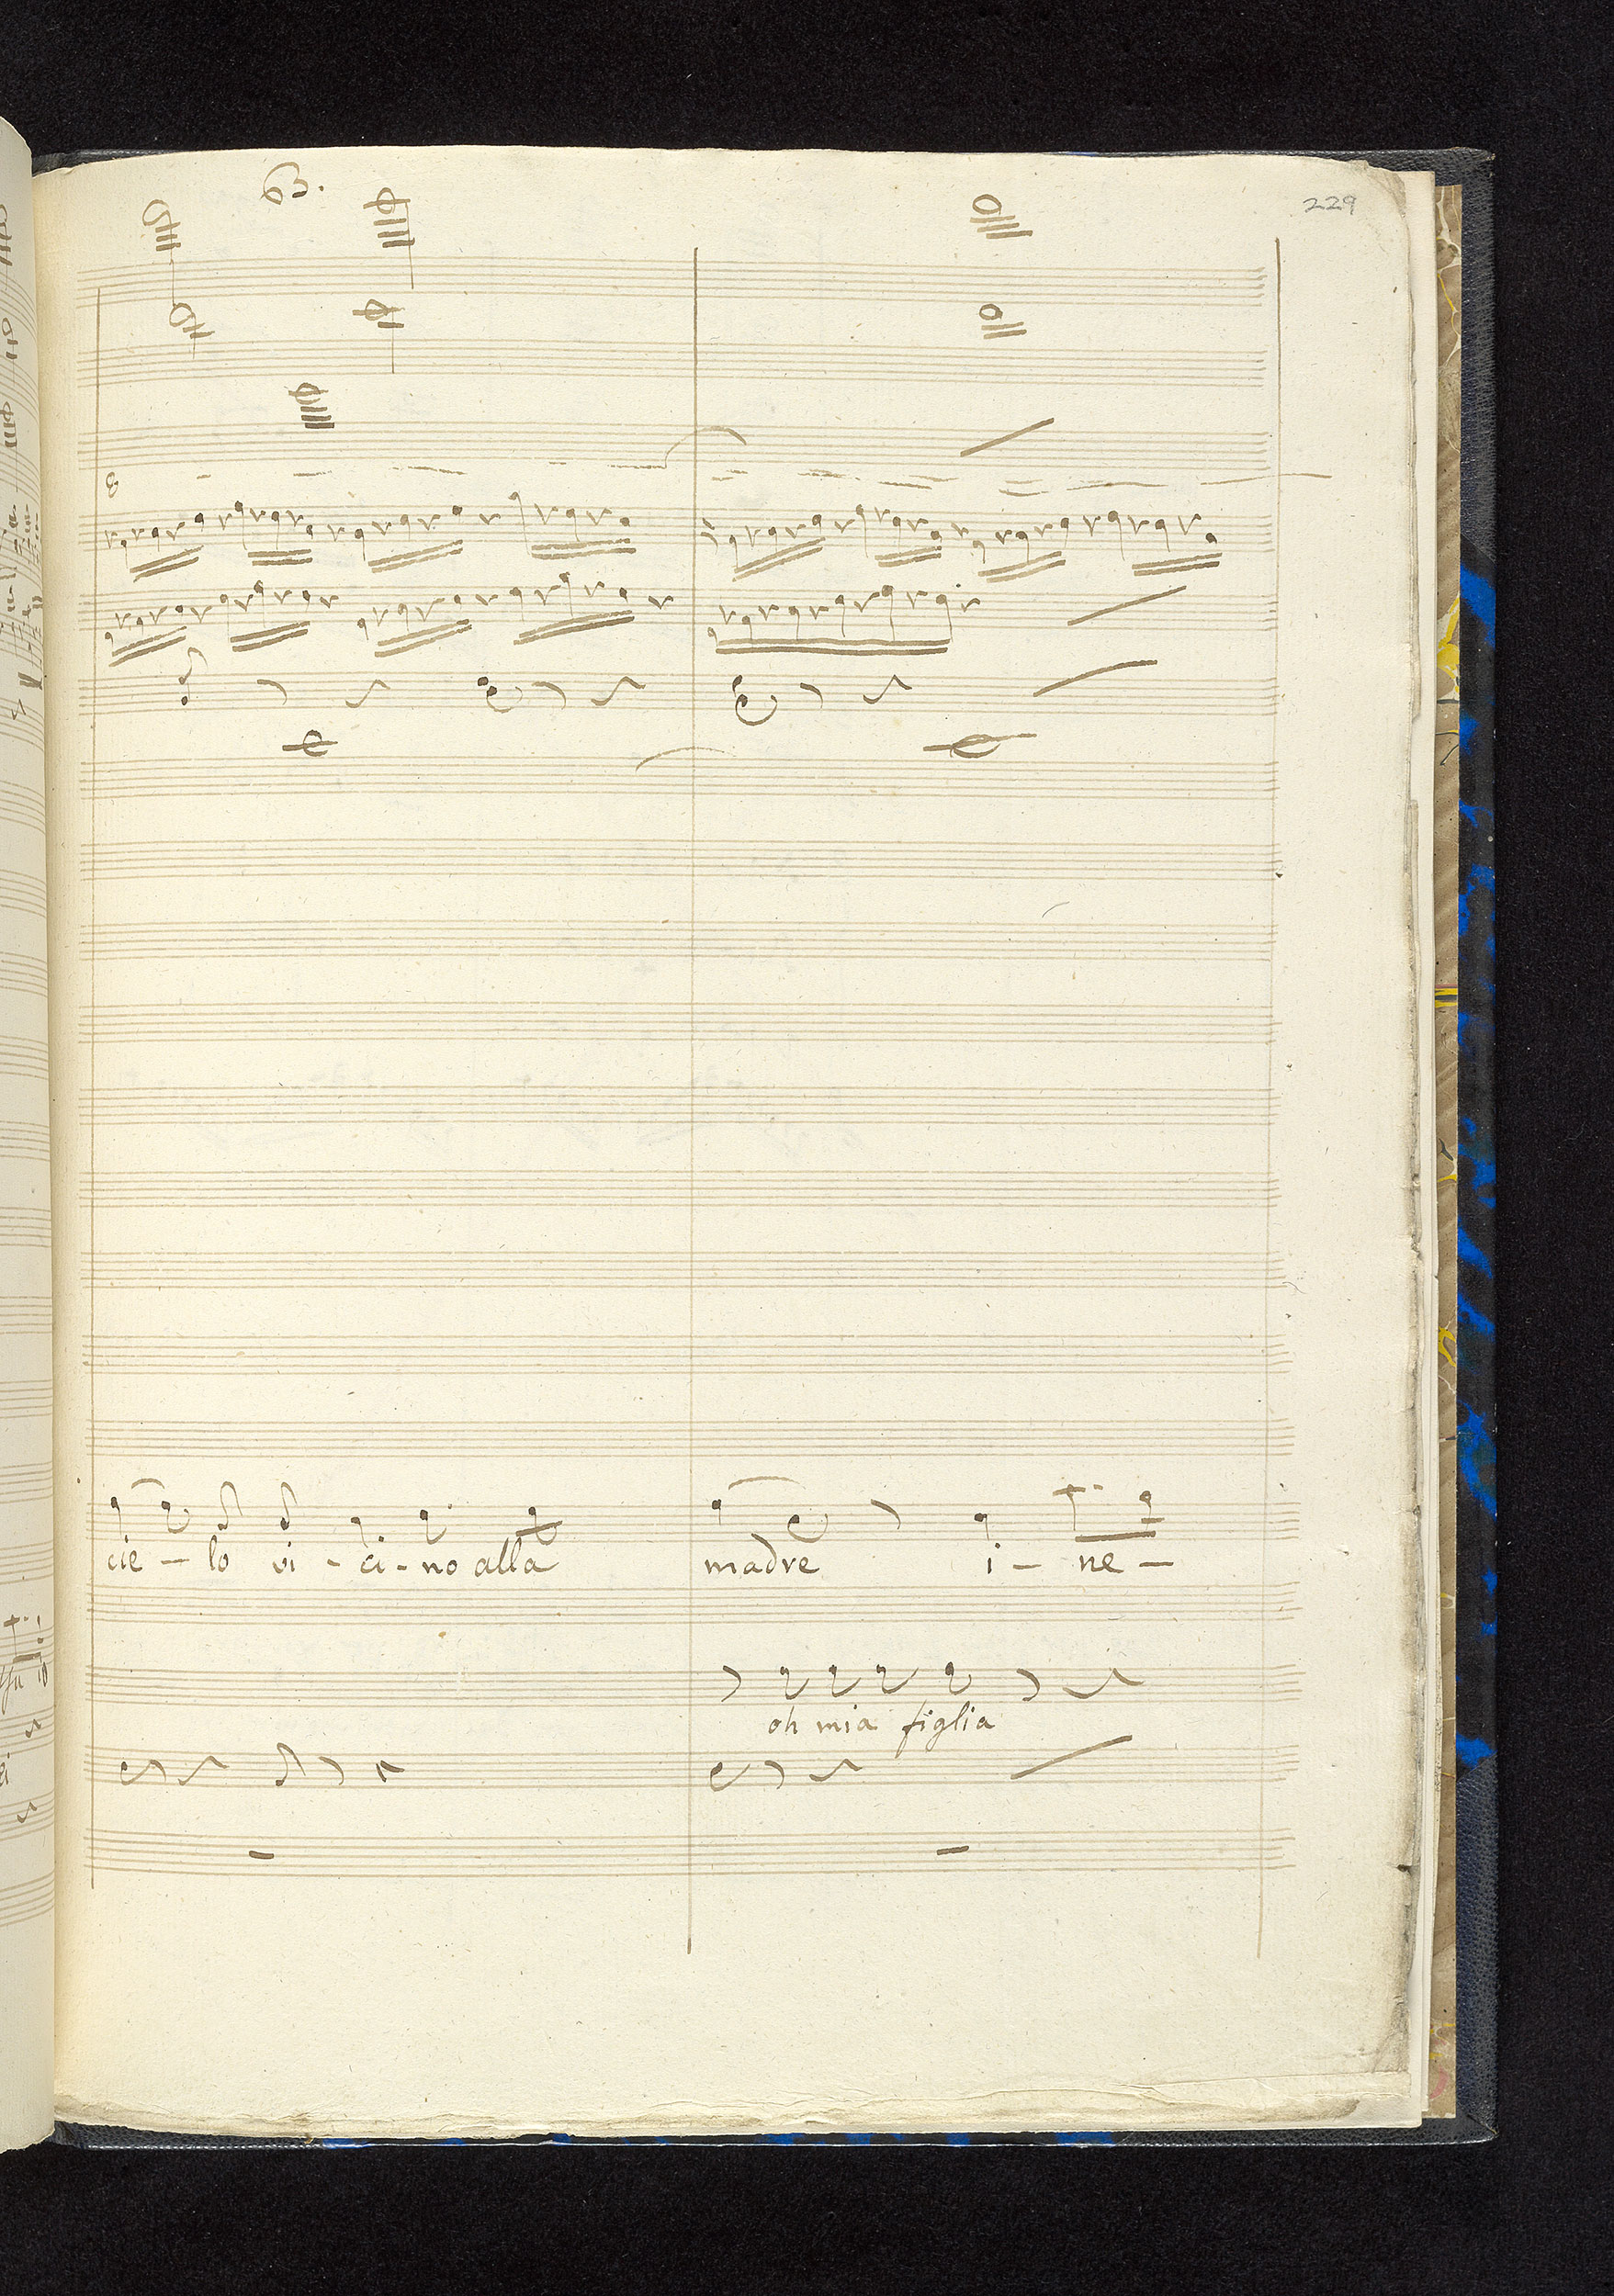 63.
229
8
cie - lo vi - ci - no alla madre i - ne -
oh mia figlia